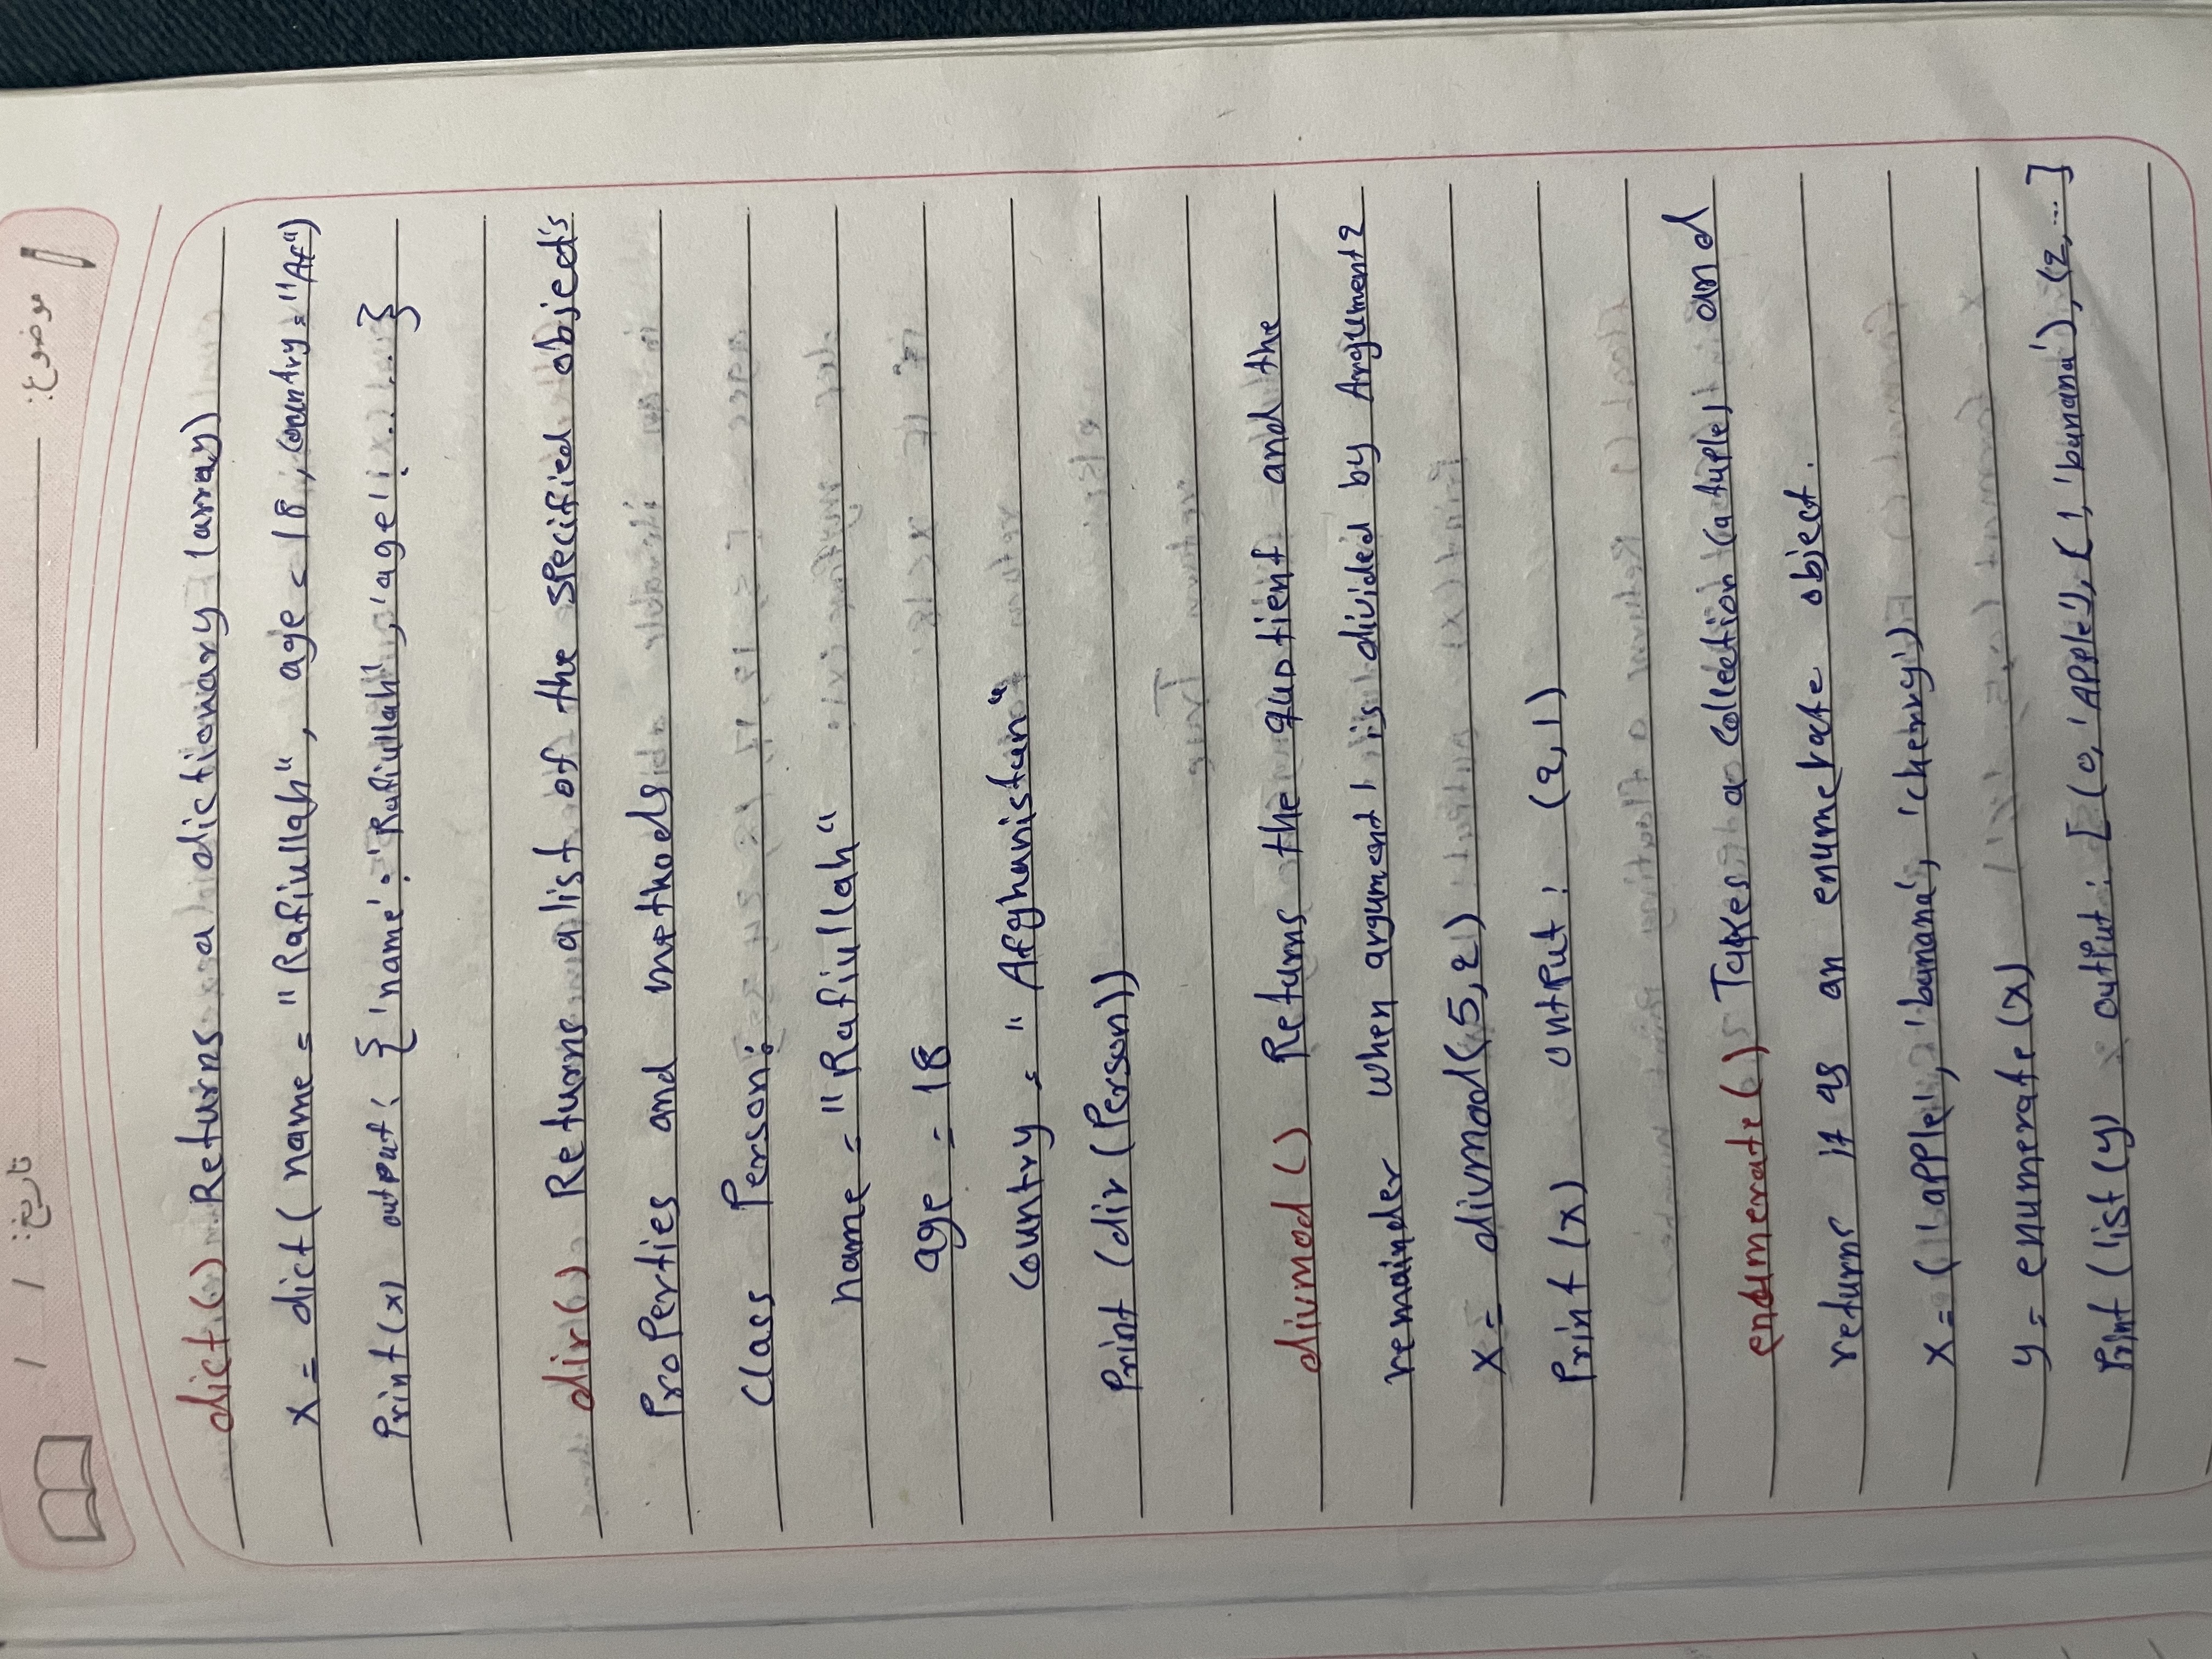 موضوع: تاریخ: / /
dict() Returns a dictionary (array)
x = dict( name = "Rafiullah", age = 18, country = "Af")
Print(x) output: { 'name': 'Rafiullah', 'age': ..... }
dir() Returns a list of the specified object's
Properties and methods
Class Person:
name = "Rafiullah"
age = 18
country = "Afghanistan"
Print (dir (Person))
divmod () Returns the quotient and the
remainder when argument 1 is divided by Argument 2
x = divmod(5,2)
Print (x) output: (2,1)
enumerate() Takes a collection (a tuple) and
returns it as an enumerate object.
x = ('apple', 'banana', 'cherry')
y = enumerate (x)
Print (list (y) output: [(0, 'Apple'), (1, 'banana'), (2, ...]